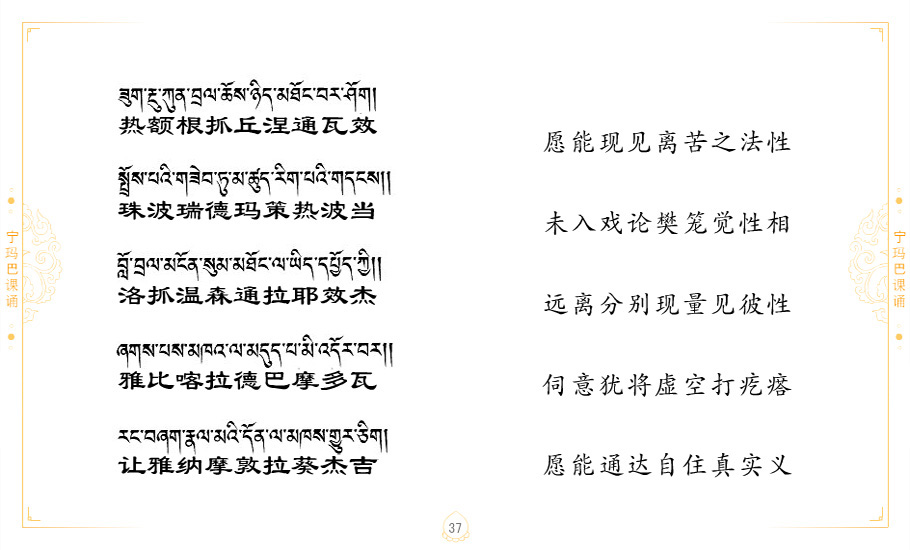 ཟུག་རྔུ་ཀུན་བྲལ་ཆོས་ཉིད་མཐོང་བར་ཤོག།
热额根抓丘涅通瓦效
སྤྲོས་པའི་གཟེབ་ཏུ་མ་ཚུད་རིག་པའི་གདངས།།
珠波瑞德玛策热波当
བློ་བྲལ་མངོན་སུམ་མཐོང་ལ་ཡིད་དཔྱོད་ཀྱི།།
洛抓温森通拉耶效杰
ཞགས་པས་མཁའ་ལ་མདུད་པ་མི་འདོར་བར།།
雅比喀拉德巴摩多瓦
རང་བཞག་རྣལ་མའི་དོན་ལ་མཁས་གྱུར་ཅིག།
让雅纳摩敦拉葵杰吉
愿能现见离苦之法性
未入戏论樊笼觉性相
远离分别现量见彼性
伺意犹将虚空打疙瘩
愿能通达自住真实义
宁玛巴课诵
宁玛巴课诵
37